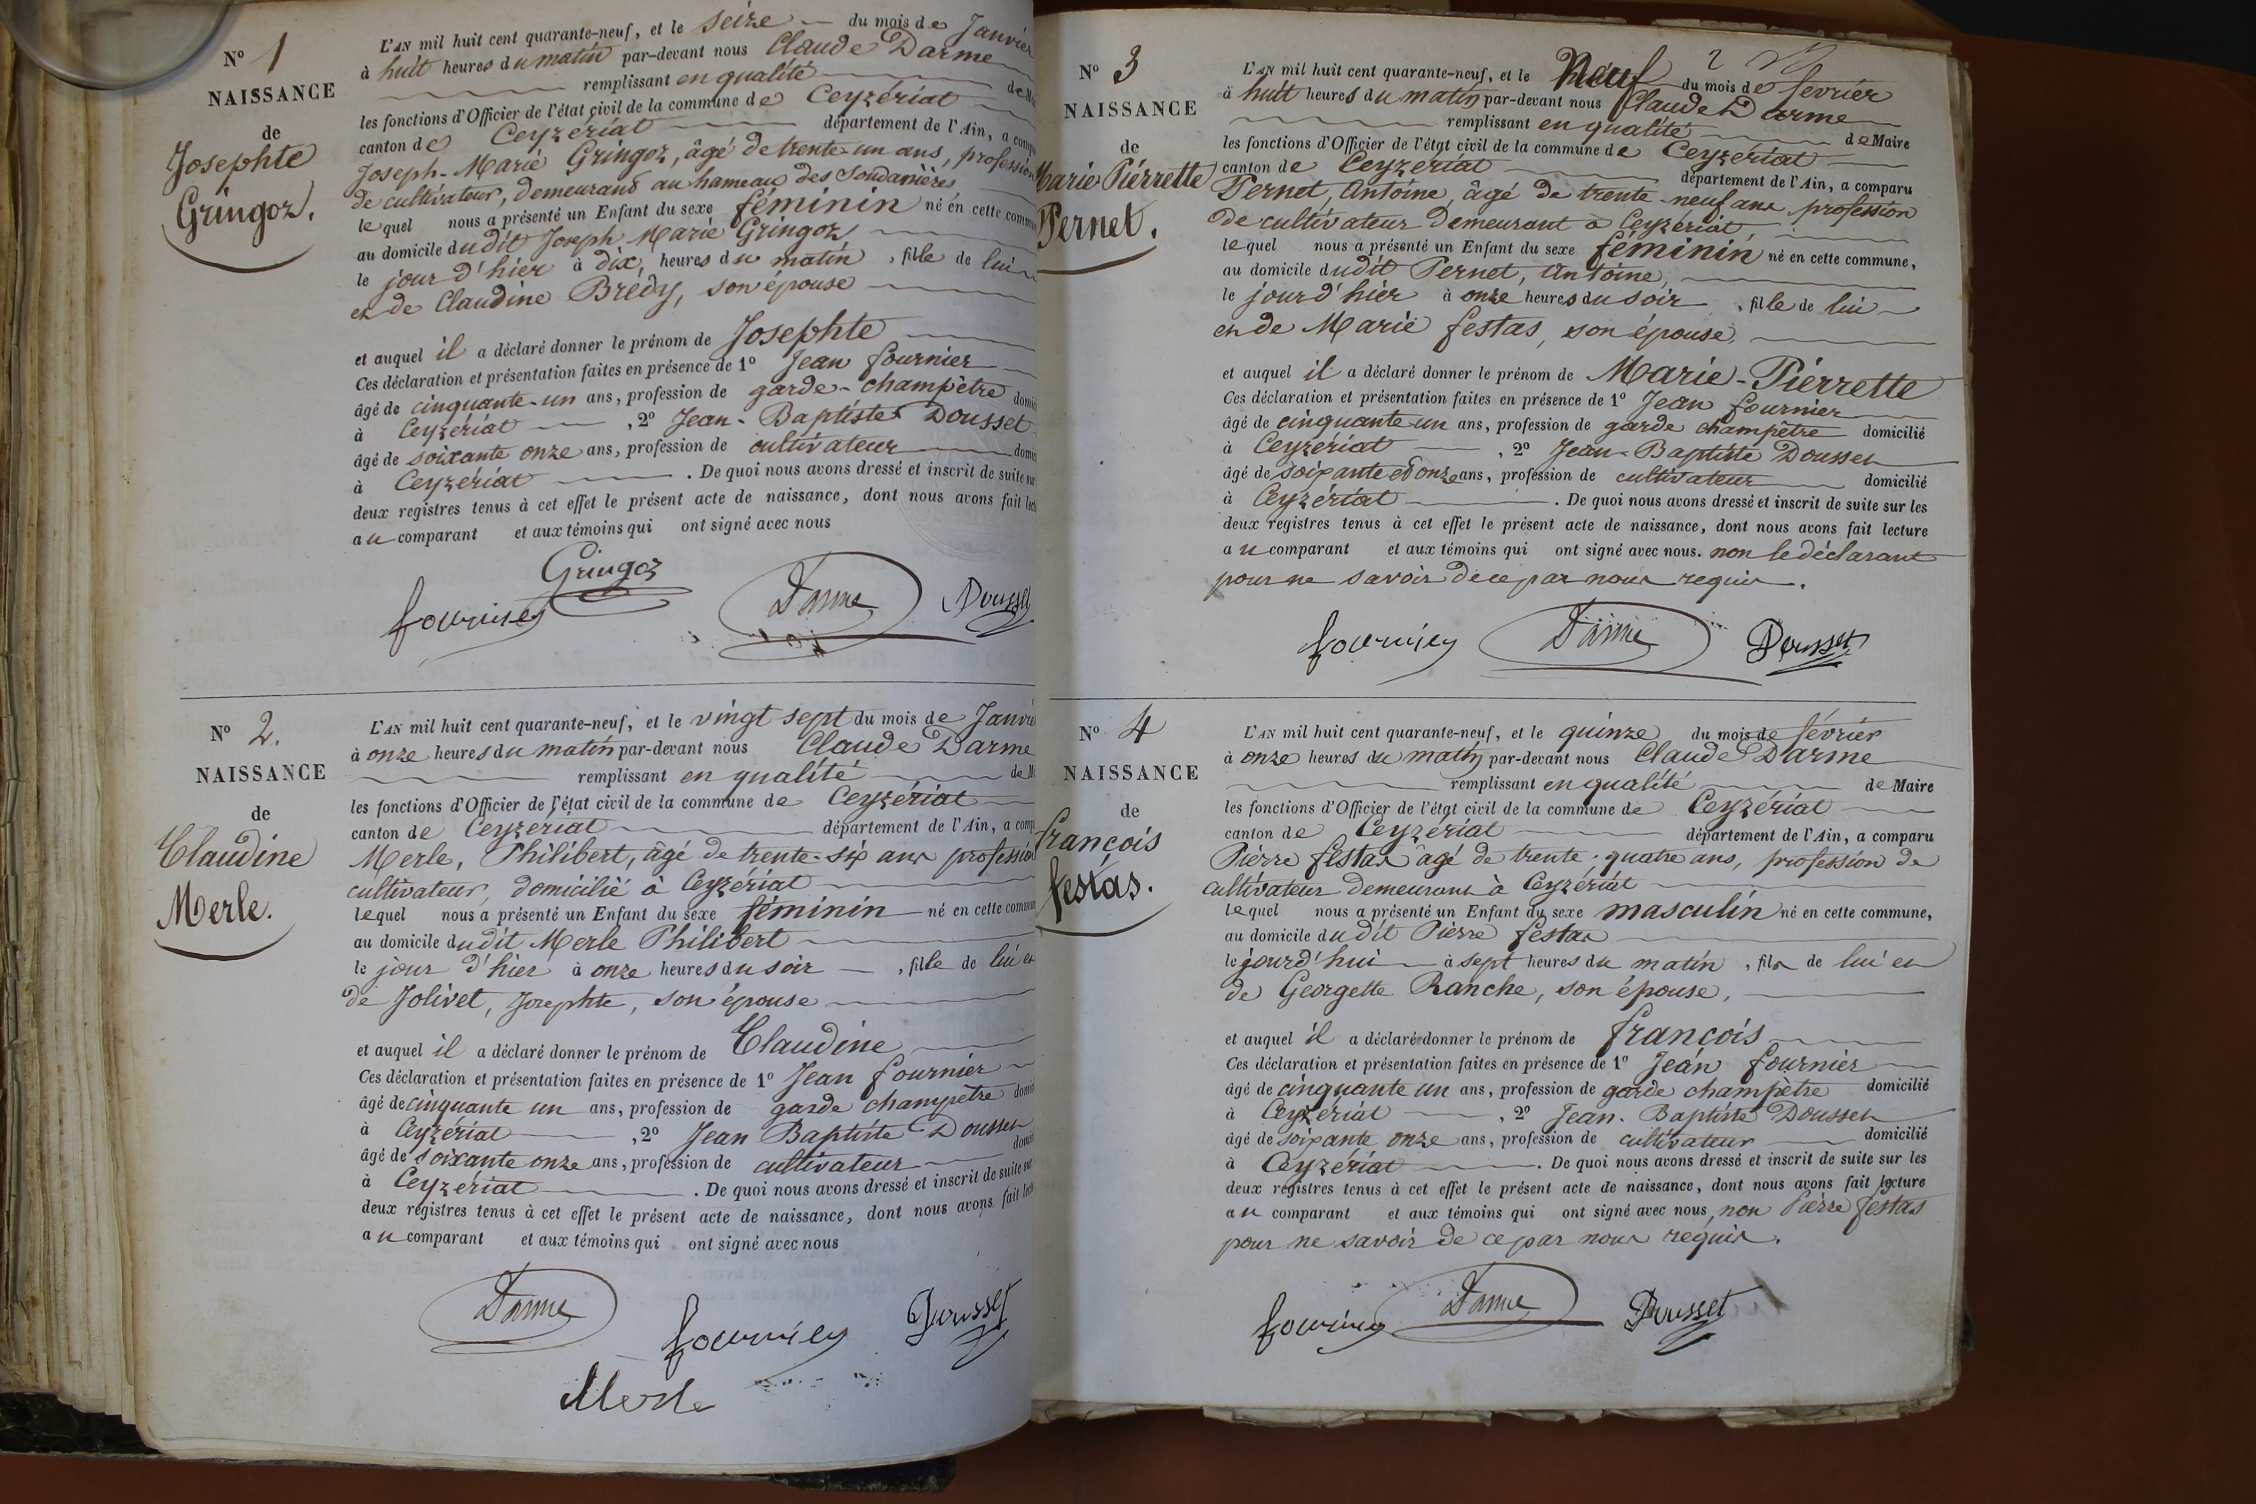 N° 1
NAISSANCE
de
Josephte
Gringoz.
L'AN mil huit cent quarante-neuf, et le seize du mois de Janvier
à huit heures du matin par-devant nous Claude Darme
remplissant en qualité de
les fonctions d'Officier de l'état civil de la commune de Ceyzériat
canton de Ceyzériat département de l'Ain, a
Joseph-Marie Gringoz, âgé de trente-un ans, profession
de cultivateur, demeurant au hameau des Soudanières
lequel nous a présenté un Enfant du sexe féminin né en cette
au domicile dudit Joseph Marie Gringoz
le jour d'hier à dix, heures du matin, fille de lui
et de Claudine Bredy, son épouse
et auquel il a déclaré donner le prénom de Josephte
Ces déclaration et présentation faites en présence de 1° Jean fournier
âgé de cinquante-un ans, profession de garde-champêtre
à Ceyzériat, 2° Jean-Baptiste Dousset
âgé de soixante onze ans, profession de cultivateur
à Ceyzériat. De quoi nous avons dressé et inscrit de suite
deux registres tenus à cet effet le présent acte de naissance, dont nous avons fait
au comparant et aux témoins qui ont signé avec nous
Gringoz
fournier Darme Dousset
N° 2.
NAISSANCE
de
Claudine
Merle.
L'AN mil huit cent quarante-neuf, et le vingt sept du mois de
à onze heures du matin par-devant nous Claude Darme
remplissant en qualité de
les fonctions d'Officier de l'état civil de la commune de Ceyzériat
canton de Ceyzériat département de l'Ain, a
Merle, Philibert, âgé de trente-six ans profession
cultivateur, domicilié à Ceyzériat
lequel nous a présenté un Enfant du sexe féminin né en cette
au domicile dudit Merle Philibert
le jour d'hier à onze heures du soir, fille de lui et
de Jolivet, Josephte, son épouse
et auquel il a déclaré donner le prénom de Claudine
Ces déclaration et présentation faites en présence de 1° Jean fournier
âgé de cinquante un ans, profession de garde champêtre
à Ceyzériat, 2° Jean Baptiste Dousset
âgé de soixante onze ans, profession de cultivateur
à Ceyzériat. De quoi nous avons dressé et inscrit de suite
deux registres tenus à cet effet le présent acte de naissance, dont nous avons fait
au comparant et aux témoins qui ont signé avec nous
Darme fournier Dousset
Merle
2
N° 3
NAISSANCE
de
Marie Pierrette
Pernet.
L'AN mil huit cent quarante-neuf, et le Neuf du mois de février
à huit heures du matin par-devant nous Claude Darme
remplissant en qualité de Maire
les fonctions d'Officier de l'état civil de la commune de Ceyzériat
canton de Ceyzériat département de l'Ain, a comparu
Pernet, Antoine, âgé de trente-neuf ans profession
de cultivateur demeurant à Ceyzériat,
lequel nous a présenté un Enfant du sexe féminin né en cette commune,
au domicile dudit Pernet, Antoine,
le jour d'hier à onze heures du soir, fille de lui
et de Marie festas, son épouse,
et auquel il a déclaré donner le prénom de Marie-Pierrette
Ces déclaration et présentation faites en présence de 1° Jean fournier
âgé de cinquante-un ans, profession de garde champêtre domicilié
à Ceyzériat, 2° Jean-Baptiste Dousset
âgé de soixante et onze ans, profession de cultivateur domicilié
à Ceyzériat. De quoi nous avons dressé et inscrit de suite sur les
deux registres tenus à cet effet le présent acte de naissance, dont nous avons fait lecture
au comparant et aux témoins qui ont signé avec nous. non le déclarant
pour ne savoir de ce par nous requis.
fournier Darme Dousset
N° 4
NAISSANCE
de
françois
festas.
L'AN mil huit cent quarante-neuf, et le quinze du mois de février
à onze heures du matin par-devant nous Claude Darme
remplissant en qualité de Maire
les fonctions d'Officier de l'état civil de la commune de Ceyzériat
canton de Ceyzériat département de l'Ain, a comparu
Pierre festas âgé de trente-quatre ans, profession de
cultivateur demeurant à Ceyzériat
lequel nous a présenté un Enfant du sexe masculin né en cette commune,
au domicile dudit Pierre festas
le jourd'hui à sept heures du matin, fils de lui et
de Georgette Ranche, son épouse,
et auquel il a déclaré donner le prénom de françois
Ces déclaration et présentation faites en présence de 1° Jean fournier
âgé de cinquante un ans, profession de garde champêtre domicilié
à Ceyzériat, 2° Jean-Baptiste Dousset
âgé de soixante onze ans, profession de cultivateur domicilié
à Ceyzériat. De quoi nous avons dressé et inscrit de suite sur les
deux registres tenus à cet effet le présent acte de naissance, dont nous avons fait lecture
au comparant et aux témoins qui ont signé avec nous, non Pierre festas
pour ne savoir de ce par nous requis.
fournier Darme Dousset